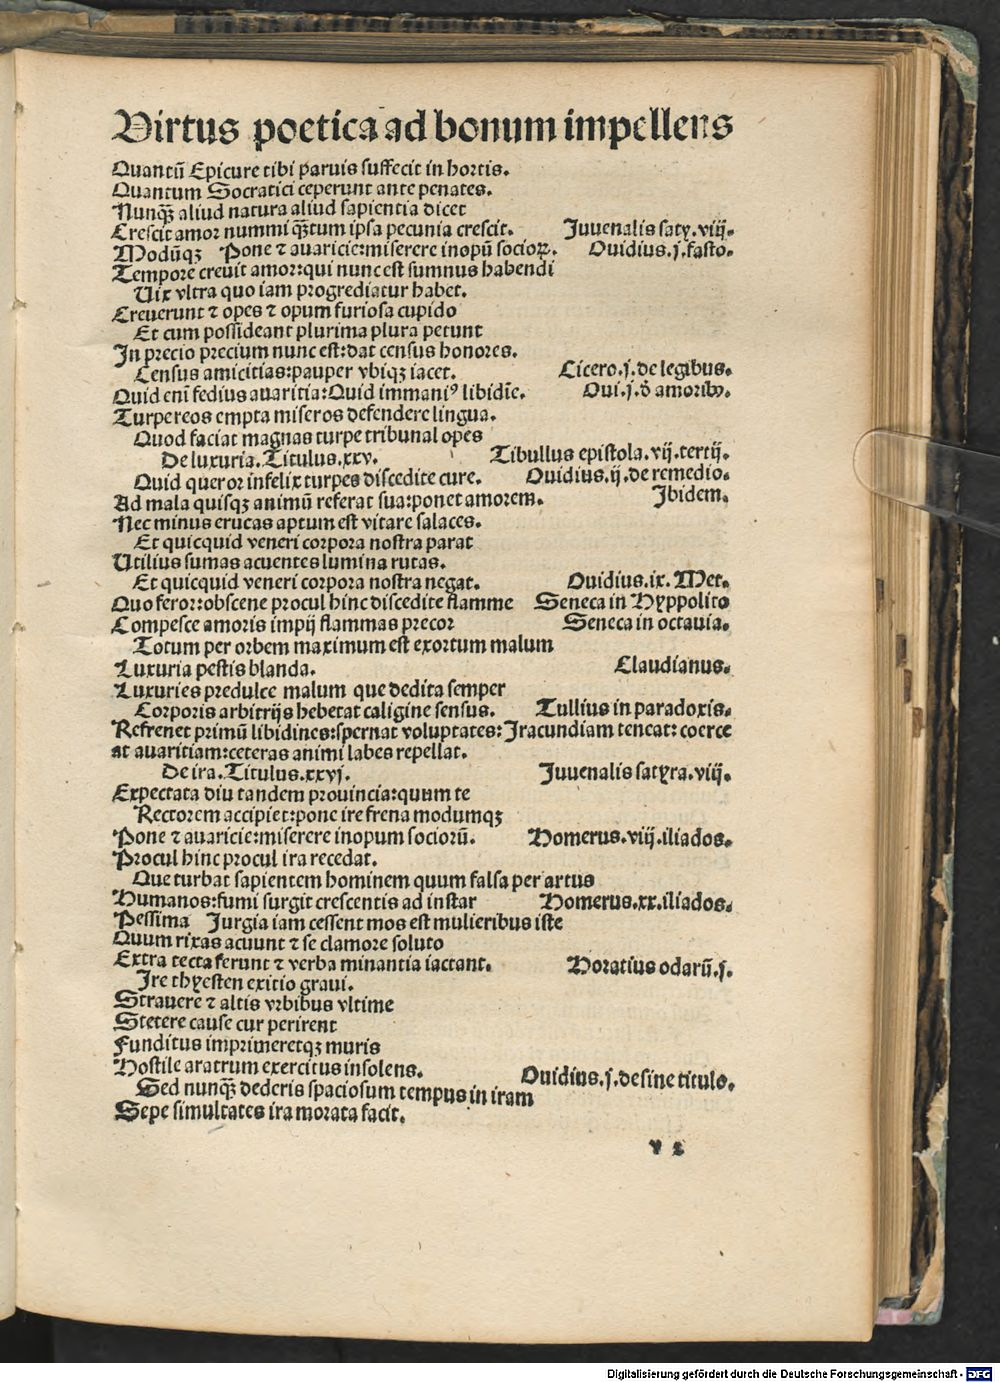 Virtus poetica ad bonum impellens
Quantū Epicure tibi paruis suffecit in hortis.
Quantum Socratici ceperunt ante penates.
Nunqꝫ aliud natura aliud sapientia dicet
Crescit amor nummi qꝫtum ipsa pecunia crescit. Juuenalis saty. viij.
Modūqꝫ Pone ⁊ auaricie:miserere inopū socioꝝ. Ouidius.j.fasto.
Tempore creuit amor:qui nunc est sumnus habendi
Uix vltra quo iam progrediatur habet.
Creuerunt ⁊ opes ⁊ opum furiosa cupido
Et cum possideant plurima plura petunt
In precio precium nunc est:dat census honores.
Census amicitias:pauper vbiqꝫ iacet. Cicero.j.de legibus.
Quid enī fedius auaritia:Quid immaniꝰ libidīe. Oui.j.ð amoribꝰ.
Turpe reos empta miseros defendere lingua.
Quod faciat magnas turpe tribunal opes
De luxuria.Titulus.xxv. Tibullus epistola.vij.tertij.
Quid queror infelix turpes discedite cure. Ouidius.ij.de remedio.
Ad mala quisqꝫ animū referat sua:ponet amorem. Ibidem.
Nec minus erucas aptum est vitare salaces.
Et quicquid veneri corpora nostra parat
Utilius sumas acuentes lumina rutas.
Et quicquid veneri corpora nostra negat. Ouidius.ix.Met.
Quo feror:obscene procul hinc discedite flamme Seneca in Hyppolito
Compesce amoris impij flammas precor Seneca in octauia.
Totum per orbem maximum est exortum malum
Luxuria pestis blanda. Claudianus.
Luxuries predulce malum que dedita semper
Corporis arbitrijs hebetat caligine sensus. Tullius in paradoxis.
Refrenet primū libidines:spernat voluptates:Iracundiam teneat:coerce
at auaritiam:ceteras animi labes repellat.
De ira.Titulus.xxvj. Juuenalis satyra.viij.
Expectata diu tandem prouincia:quum te
Rectorem accipiet:pone ire frena modumqꝫ
Pone ⁊ auaricie:miserere inopum sociorū. Homerus.viij.iliados.
Procul hinc procul ira recedat.
Que turbat sapientem hominem quum falsa per artus
Humanos:fumi surgit crescentis ad instar Homerus.xx.iliados.
Pessima Jurgia iam cessent mos est mulieribus iste
Quum rixas acuunt ⁊ se clamore soluto
Extra tecta ferunt ⁊ verba minantia iactant. Horatius odarū.j.
Ire thyesten exitio graui.
Strauere ⁊ altis vrbibus vltime
Stetere cause cur perirent
Funditus imprimeretqꝫ muris
Hostile aratrum exercitus insolens. Ouidius.j.de sine titulo.
Sed nunqꝫ dederis spaciosum tempus in iram
Sepe simultates ira morata facit.
Digitalisierung gefördert durch die Deutsche Forschungsgemeinschaft - DFG